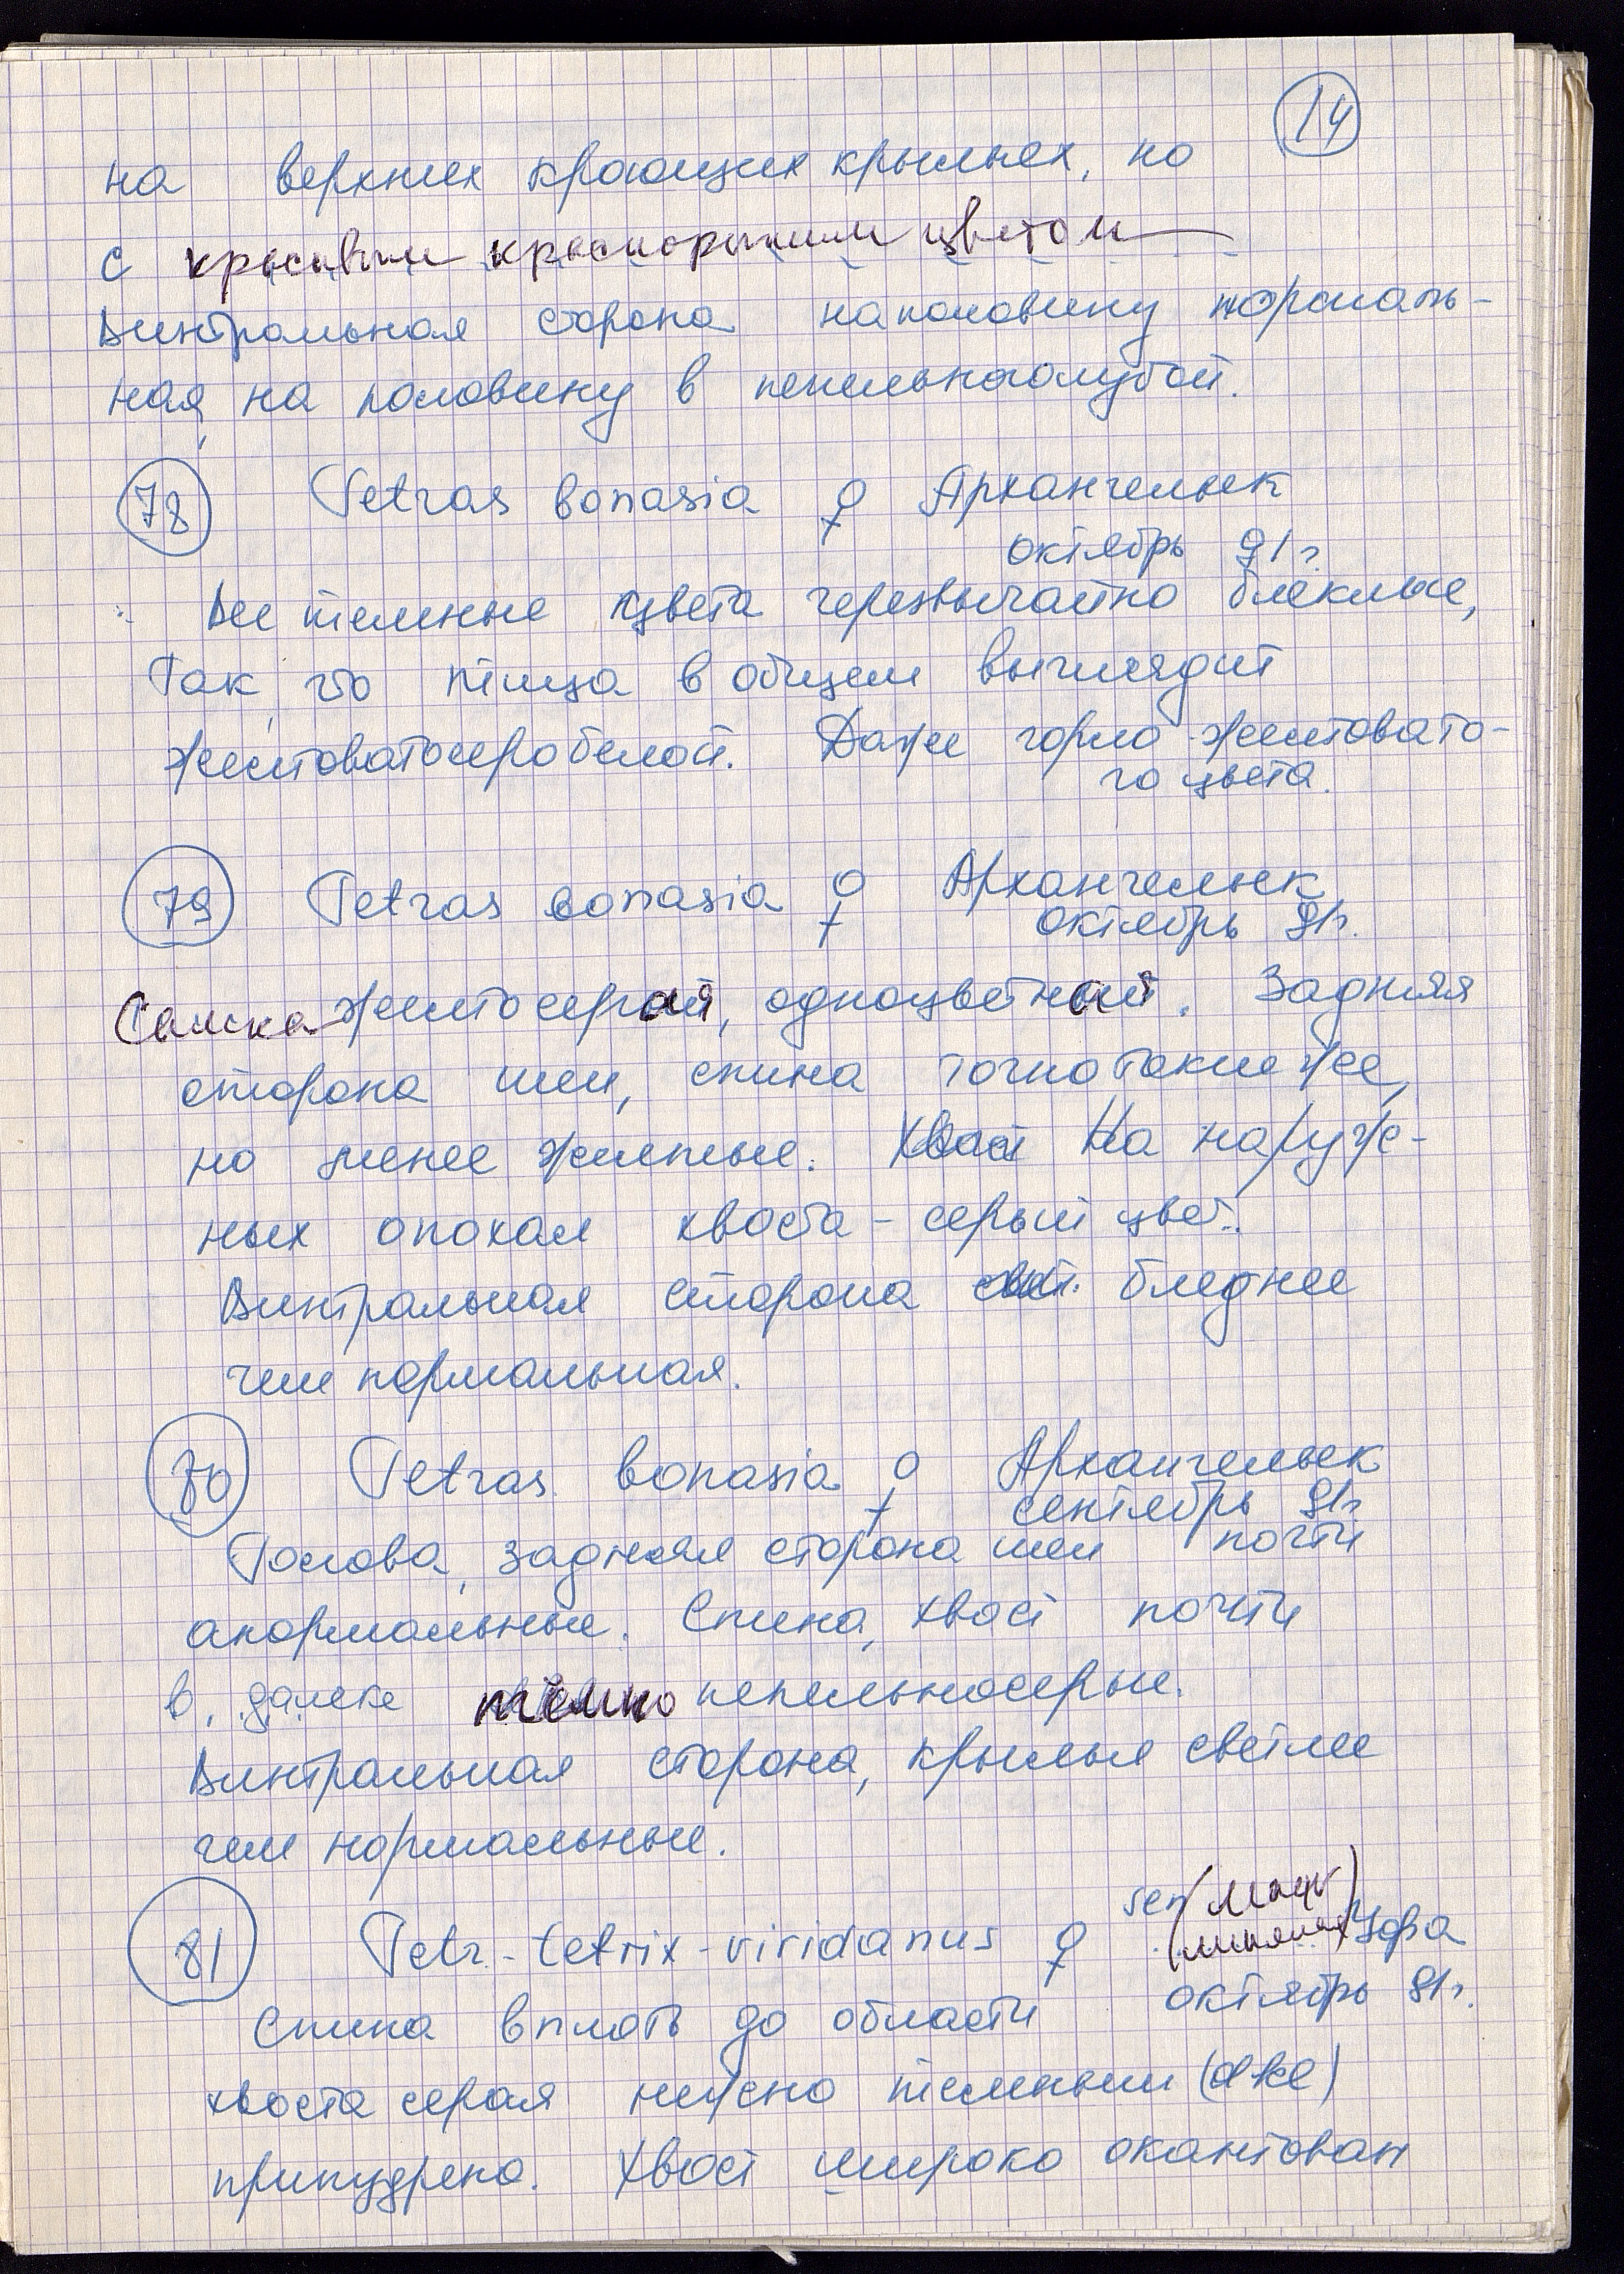 14
на верхних кроющих крыльях, но
с красивым краснорыжим цветом
Вентральная сторона наполовину нормаль-
ная, на половину в пепельноголубой.
78 Tetras bonasia ♀ Архангельск
октябрь 91 г.
Все темные цвета черезвычайно блеклые,
так что птица в общем выглядит
желтоватосеробелой. Даже горло желтовато-
го цвета.
79 Tetras bonasia ♀ Архангельск
октябрь 91г.
Самка желтосерая, одноцветная. Задняя
сторона шеи, спина точно такие же,
но менее желтые. Хвост На наруж-
ных опохал хвоста - серый цвет.
Вентральная сторона бледнее
чем нормальная.
80 Tetras bonasia ♀ Архангельск
сентябрь 91г
Голова, задняя сторона шеи почти
анормальные. Спина, хвост почти
в далеке темно пепельносерые.
Вентральная сторона, крылья светлее
чем нормальные.
81 Tetr-tetrix-viridanus ♀ sen Уфа
октябрь 91г.
Спина вплоть до области
хвоста серая нежно темным
припудрена. Хвост широко окантован